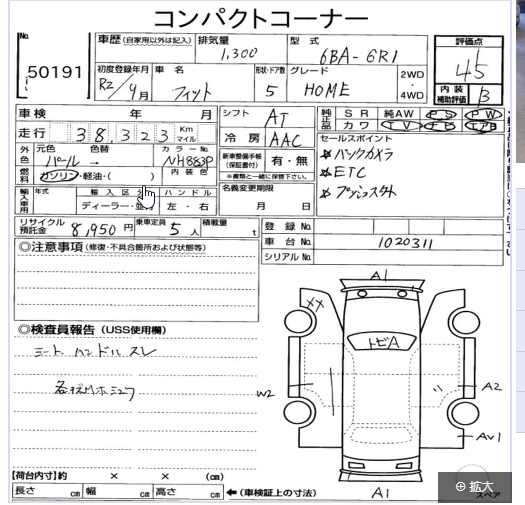 コンパクトコーナー
No.
50191
車歴(自家用以外は記入) 排気量 型式
1,300 6BA-GR1
初度登録年月 車名 形状・ドア数 グレード
R2/9月 フィット 5 HOME
2WD
・
4WD
評価点
4.5
内装
補助評価 B
車検 年 月
シフト AT
純正品 SR 純AW PS PW
カワ TV エアB
走行 38,323 Km
マイル
冷房 AAC
セールスポイント
外色 元色 色替 カラーNo.
パール → NH883P
※バックカメラ
※ETC
※プッシュスタート
燃料 ガソリン・軽油・( ) 内装色
新車整備手帳
(保証書付) 有・無
※書類と一緒に保管下さい。
輸入車用 年式 輸入区分 ハンドル
ディーラー・並行 左・右
名義変更期限
月 日
リサイクル
預託金 8,950円 乗車定員 5人 積載量 t
登録No.
車台No. 1020311
シリアルNo.
◎注意事項(修復・不具合箇所および状態等)
◎検査員報告(USS使用欄)
シート ハンドル スレ
A1
XX
トビA
W2
A2
Av1
A1
【荷台内寸】約 × × (cm)
長さ cm 幅 cm 高さ cm ←(車検証上の寸法)
拡大
スペア